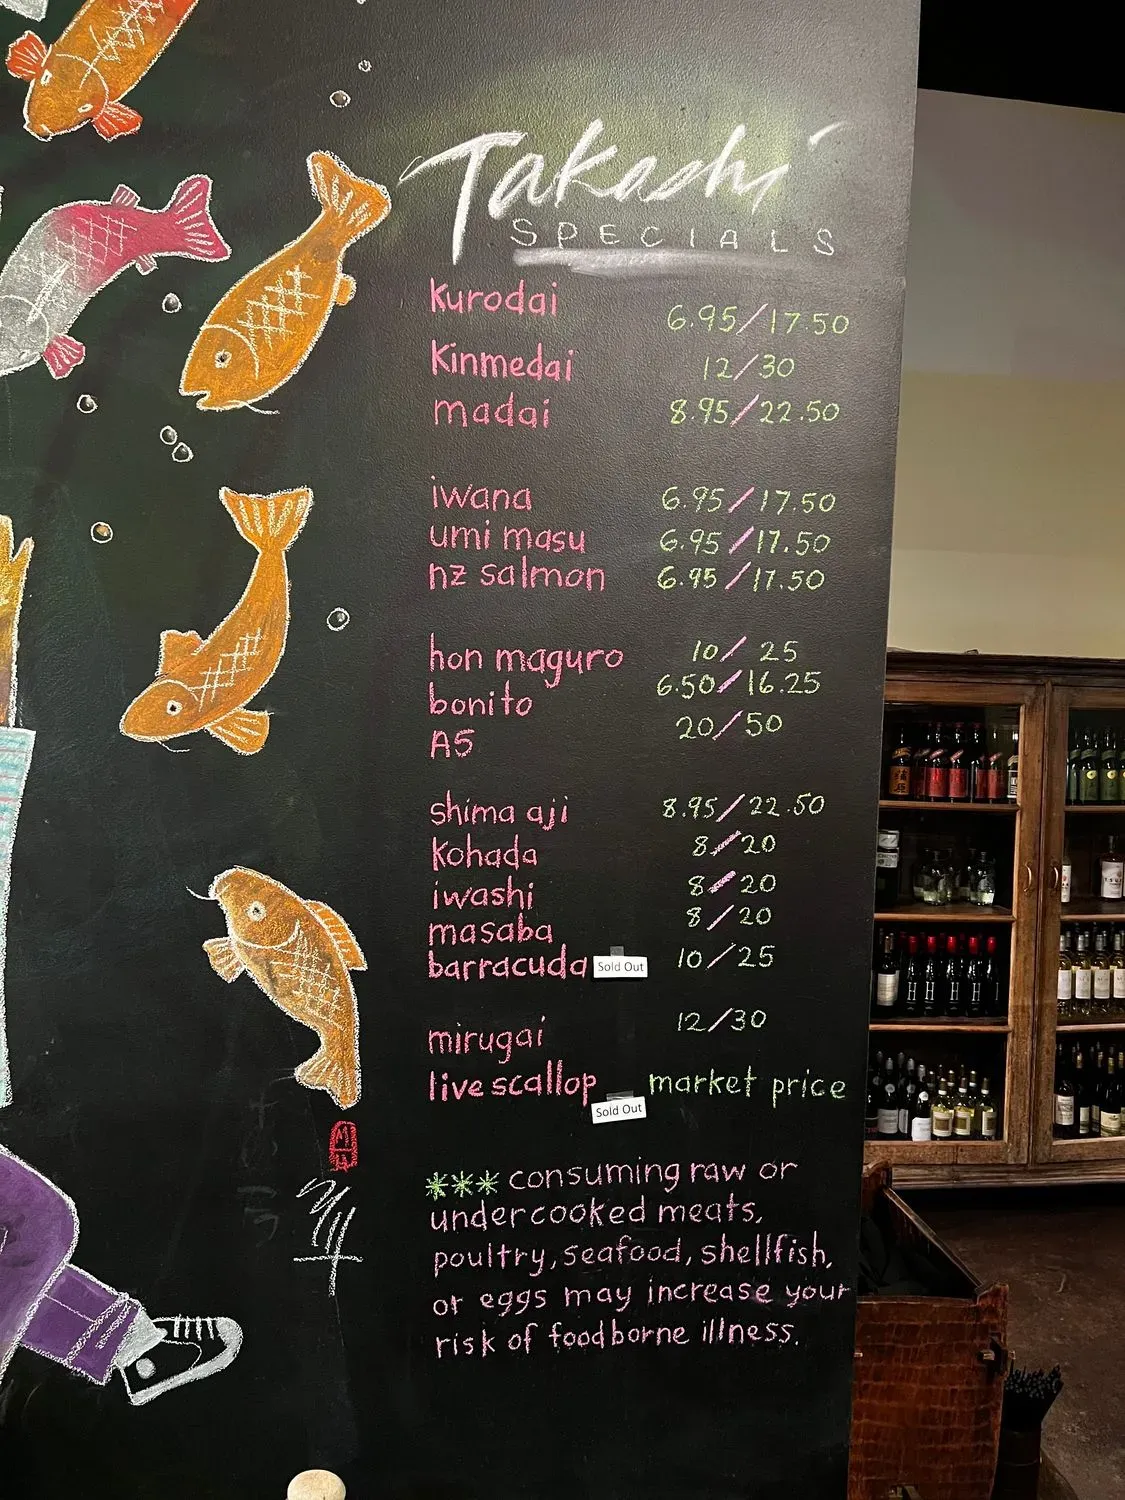 Takashi
SPECIALS
Kurodai 6.95/17.50
Kinmedai 12/30
madai 8.95/22.50
iwana 6.95/17.50
umi masu 6.95/17.50
nz salmon 6.95/17.50
hon maguro 10/25
bonito 6.50/16.25
A5 20/50
shima aji 8.95/22.50
kohada 8/20
iwashi 8/20
masaba 8/20
barracuda Sold Out 10/25
mirugai 12/30
live scallop market price
Sold Out
*** consuming raw or
undercooked meats,
poultry, seafood, shellfish,
or eggs may increase your
risk of foodborne illness.